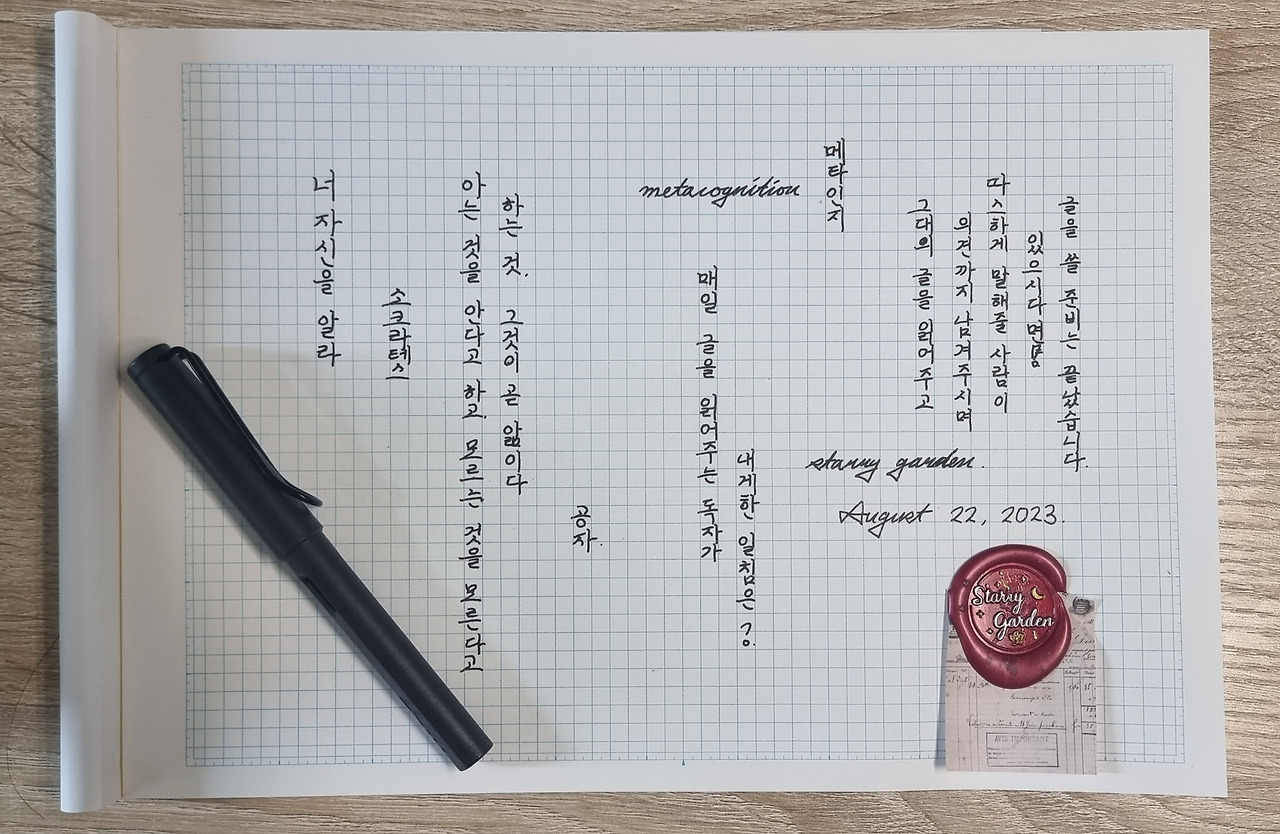 너 자신을 알라
소크라테스
아는 것을 안다고 하고. 모르는 것을 모른다고
하는 것. 그것이 곧 앎이다
공자.
metacognition
메타인지
매일 글을 읽어주는 독자가
내게한 일침은?
그대의 글을 읽어주고
의견까지 남겨주시며
따스하게 말해줄 사람이
있으시다면
글을 쓸 준비는 끝났습니다.
starry garden.
August 22, 2023.
Starry
Garden
AVIS IMPORTANT